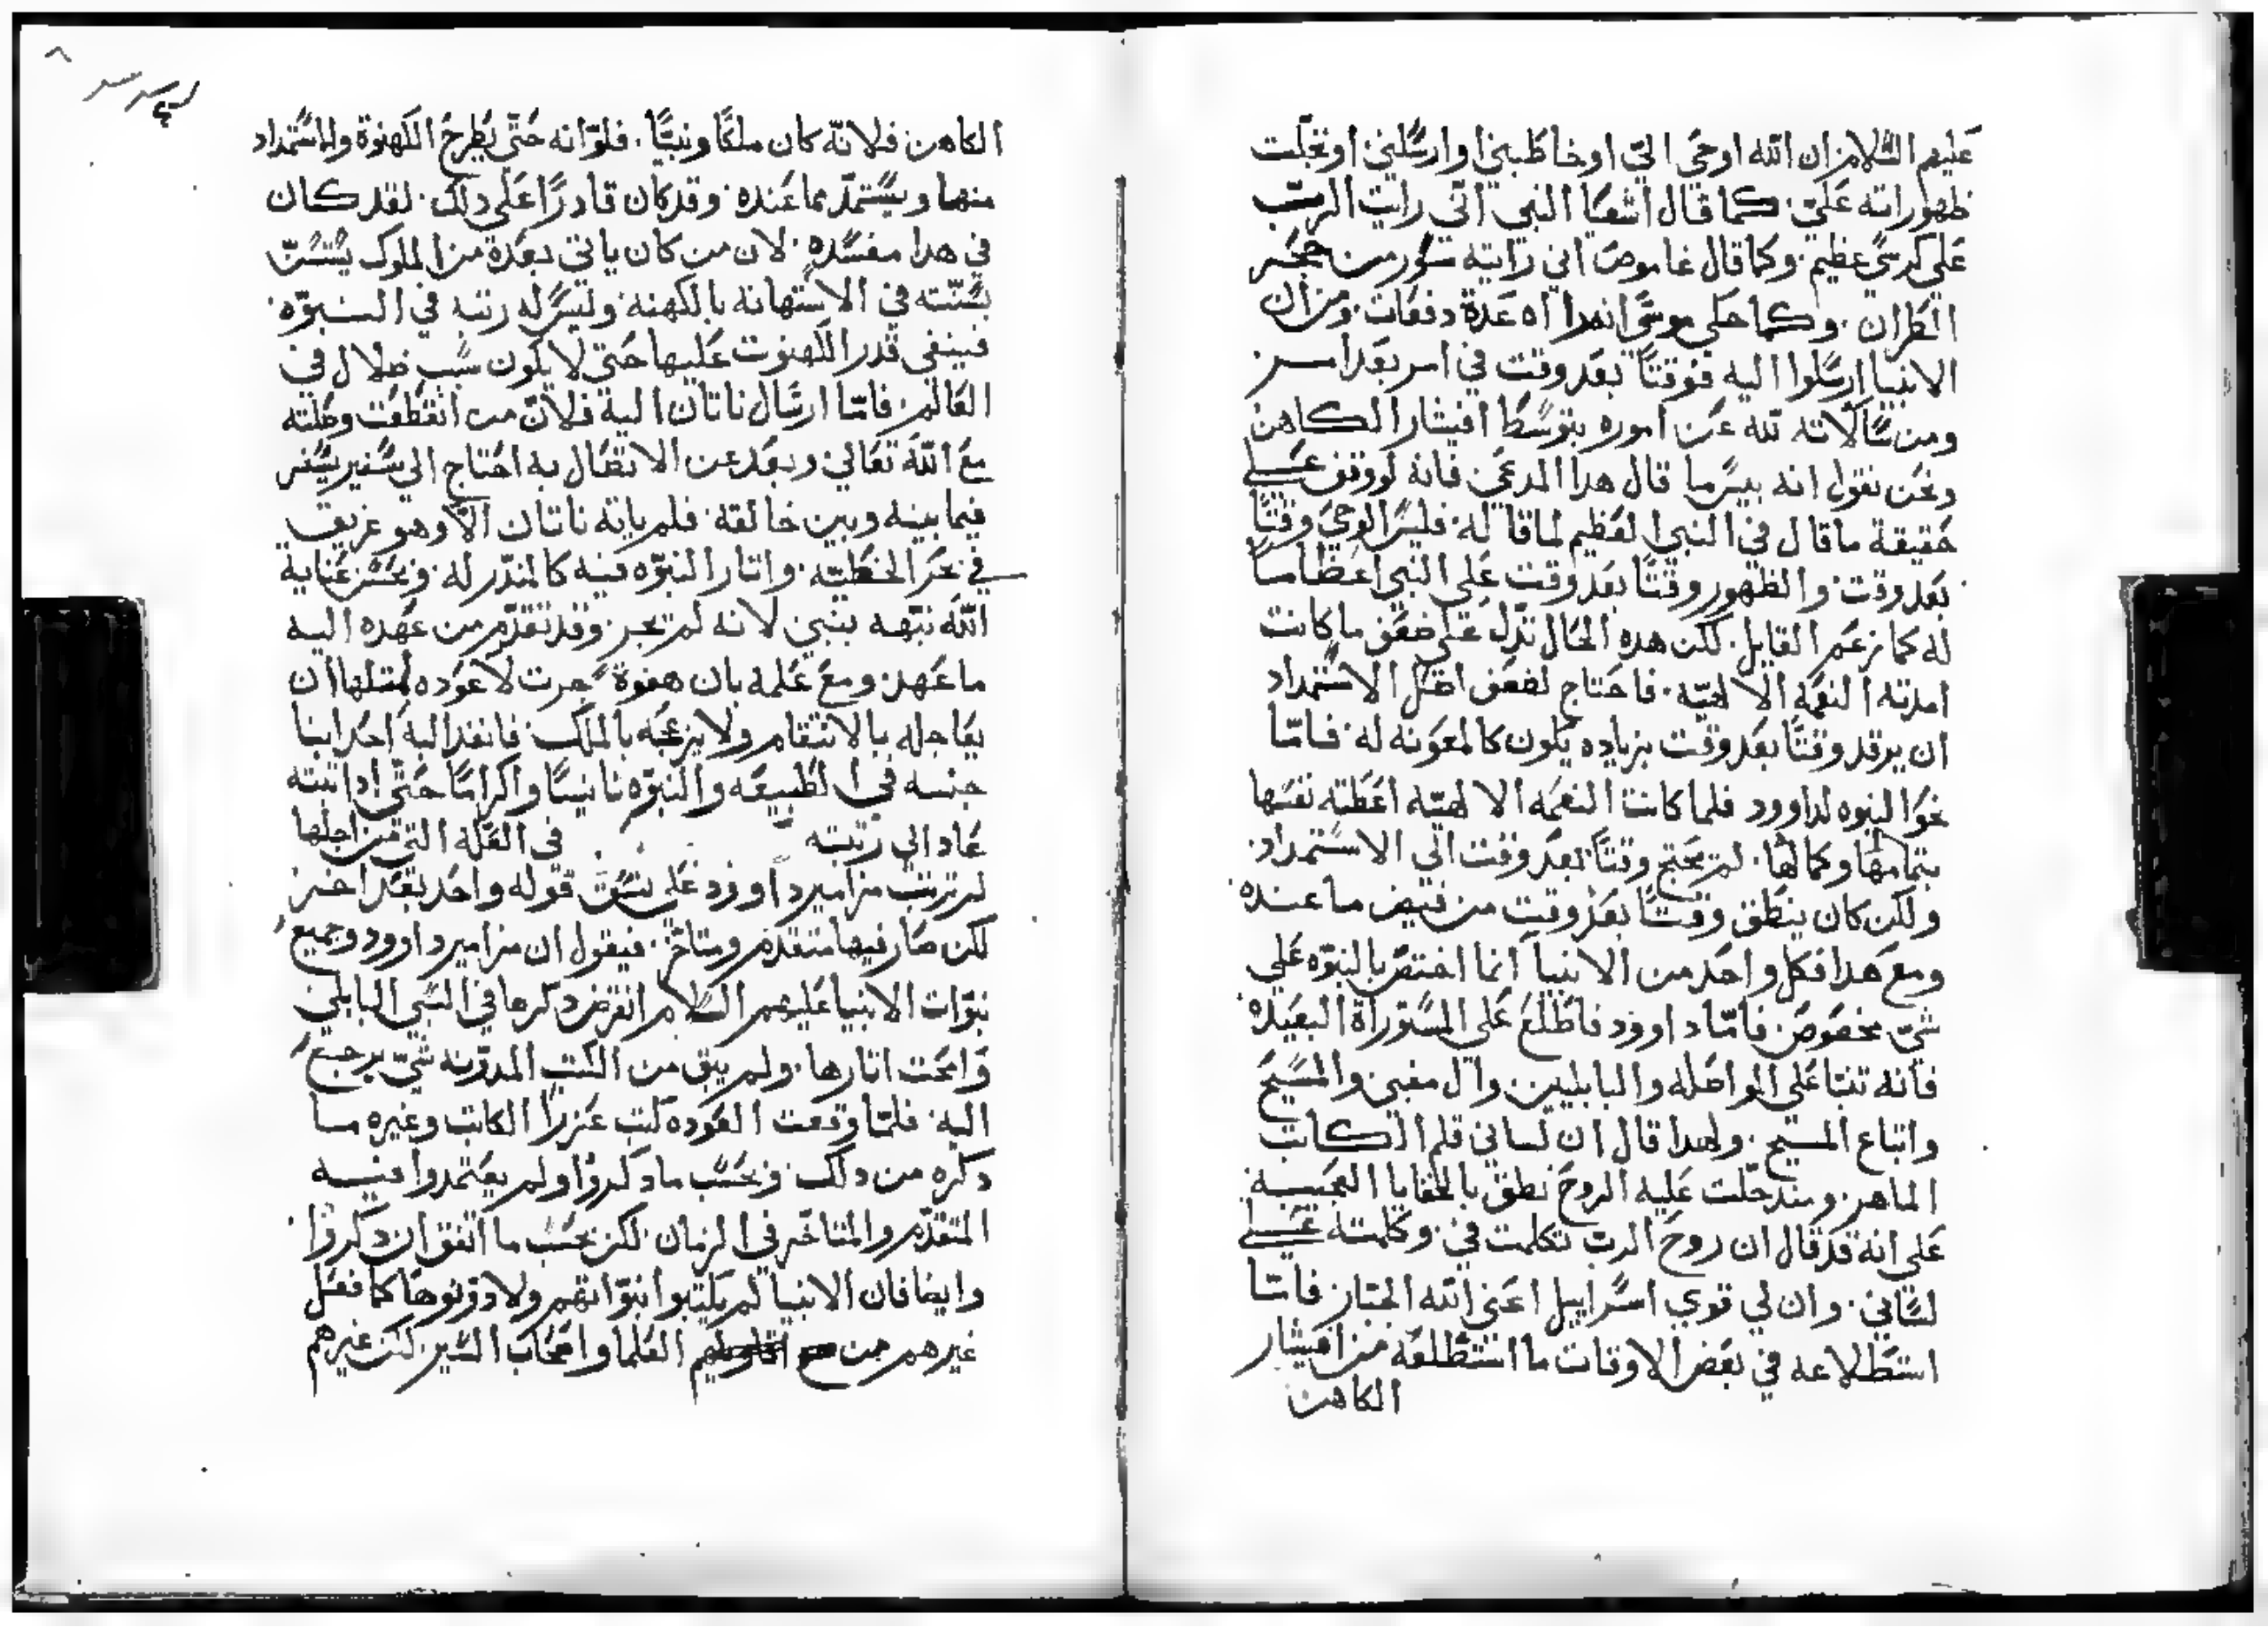 عليهم السلام ان الله اوحى الي او خاطبني او ارسلني او تجلت
ظهوراته علي. كما قال اشعيا النبي اني رايت الرب
على كرسي عظيم. وكما قال عاموص اني رايته سور من حجر
الطران. وكما حكى موسى انه راه عدة دفعات. ومن ان
الانبيا ارسلوا اليه فوقتًا بعد وقت في امر بعد امر
ومن سالاته لله عن اموره بتوسط افيشار الكاهن
ونحن نقول انه بيس ما قال هدا المدعي فانه لو وقف على
حقيقة ما قال في النبي العظيم لما قاله. فليس الوحي وقتًا
بعد وقت والظهور وقتًا بعد وقت على النبي اعظامًا
له كما زعم القايل. لكن هده الحال تدل على ضعف ما كانت
امدته النعمه الالهيه. فاحتاج لضعف اصل الاستمداد
ان يرفد وقتًا بعد وقت بزياده يكون كالمعونه له. فامّا
نحو النبوه لداوود فلما كانت النعمه الالهيّه اعطته نفسها
بتمامها وكمالها. لم يحتج وقتًا بعد وقت الى الاستمداد.
ولكن كان ينطق وقتًا بعد وقت من فيض ما عنده.
ومع هدا فكل واحد من الانبيا انما اختص بالنبوّه علي
شي مخصوص. فامّا داوود فاطلع على المستورات البعيده
فانه تنبا على المواصله والبابليين وال مقبي والمسيح
واتباع المسيح. ولهدا قال ان لساني قلم الكاتب
الماهر. ومند حلّت عليه الروح نطق بالخفايا العجيبه.
على انه قد قال ان روح الرب تكلمت في. وكلمته على
لساني. وان لي قوي اسراييل اعني الله الجبار. فامّا
استطلاعه في بعض الاوقات ما استطلعه من افيشار
الكاهن
الكاهن فلانّه كان ملكًا ونبيًّا. فلو انه حتى يطرح الكهنوة والاستمداد
منها ويستمدّ مما عنده. وقد كان قادرًا على دلك. لقد كان
في هدا مفسده. لان من كان ياتي بعده من الملوك يستسنّ
بسنّته في الاستهانه بالكهنه. وليس له رتبه في النبوّه.
فينفي قدر الكهنوت عليها حتى لا يكون سبب ضلال في
العالم. فامّا ارسال ناتان اليه فلانّ من انقطعت وصلته
مع الله تعالي وبعد عن الاتصال به احتاج الي سفير يسفر
فيما بينه وبين خالقه. فلم ياته ناتان الّا وهو غريق
في بحر الخطيّه. واتار النبوّه فيه كالمندر له. وبحسن عناية
الله نبّهه بنبي لانه لم يجز. وقد تقدّم من عهده اليه
ما عهد. ومع علمه بان هفوة جرت لا عوده لمتلها ان
يعاجله بالانتقام ولا يزعجه بالملك. فانفد اليه احد ابنا
جنسه في الطبيعه والنبوّه تانيسًا واكرامًا حتّى ادا نبّه
عاد الى رتبته في العلّه التي من اجلها
لم ترتب مزامير داوود على نسق قوله واحد بعد اخر
لكن صار فيها متقدم ومتاخّر. فيقول ان مزامير داوود وجميع
نبوّات الانبيا عليهم السلام انقرض دكرها في السبي البابلي
وامحت اتارها. ولم يبق من الكتب المدوّنه شيّ يرجع
اليه. فلمّا وقعت العوده كتب عزرا الكاتب وغيره ما
دكره من دلك. وبحسب ما دكروا ولم يعتمدوا فيه
المتقدّم والمتاخّر في الزمان. لكن بحسب ما اتفق ان دكروا.
وايضا فان الانبيا لم يكتبوا نبوّاتهم ولا دوّنوها كما فعل
غيرهم من العلما واصحاب السير. لكن غيرهم